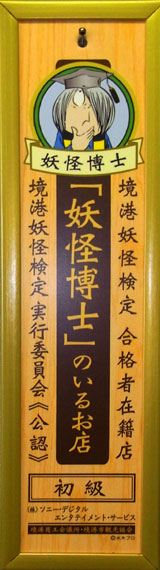 妖怪博士
境港妖怪検定 合格者在籍店
「妖怪博士」のいるお店
境港妖怪検定 実行委員会《公認》
初級
(株)ソニー・デジタル
エンタテイメント・サービス
境港商工会議所・境港市観光協会
©水木プロ